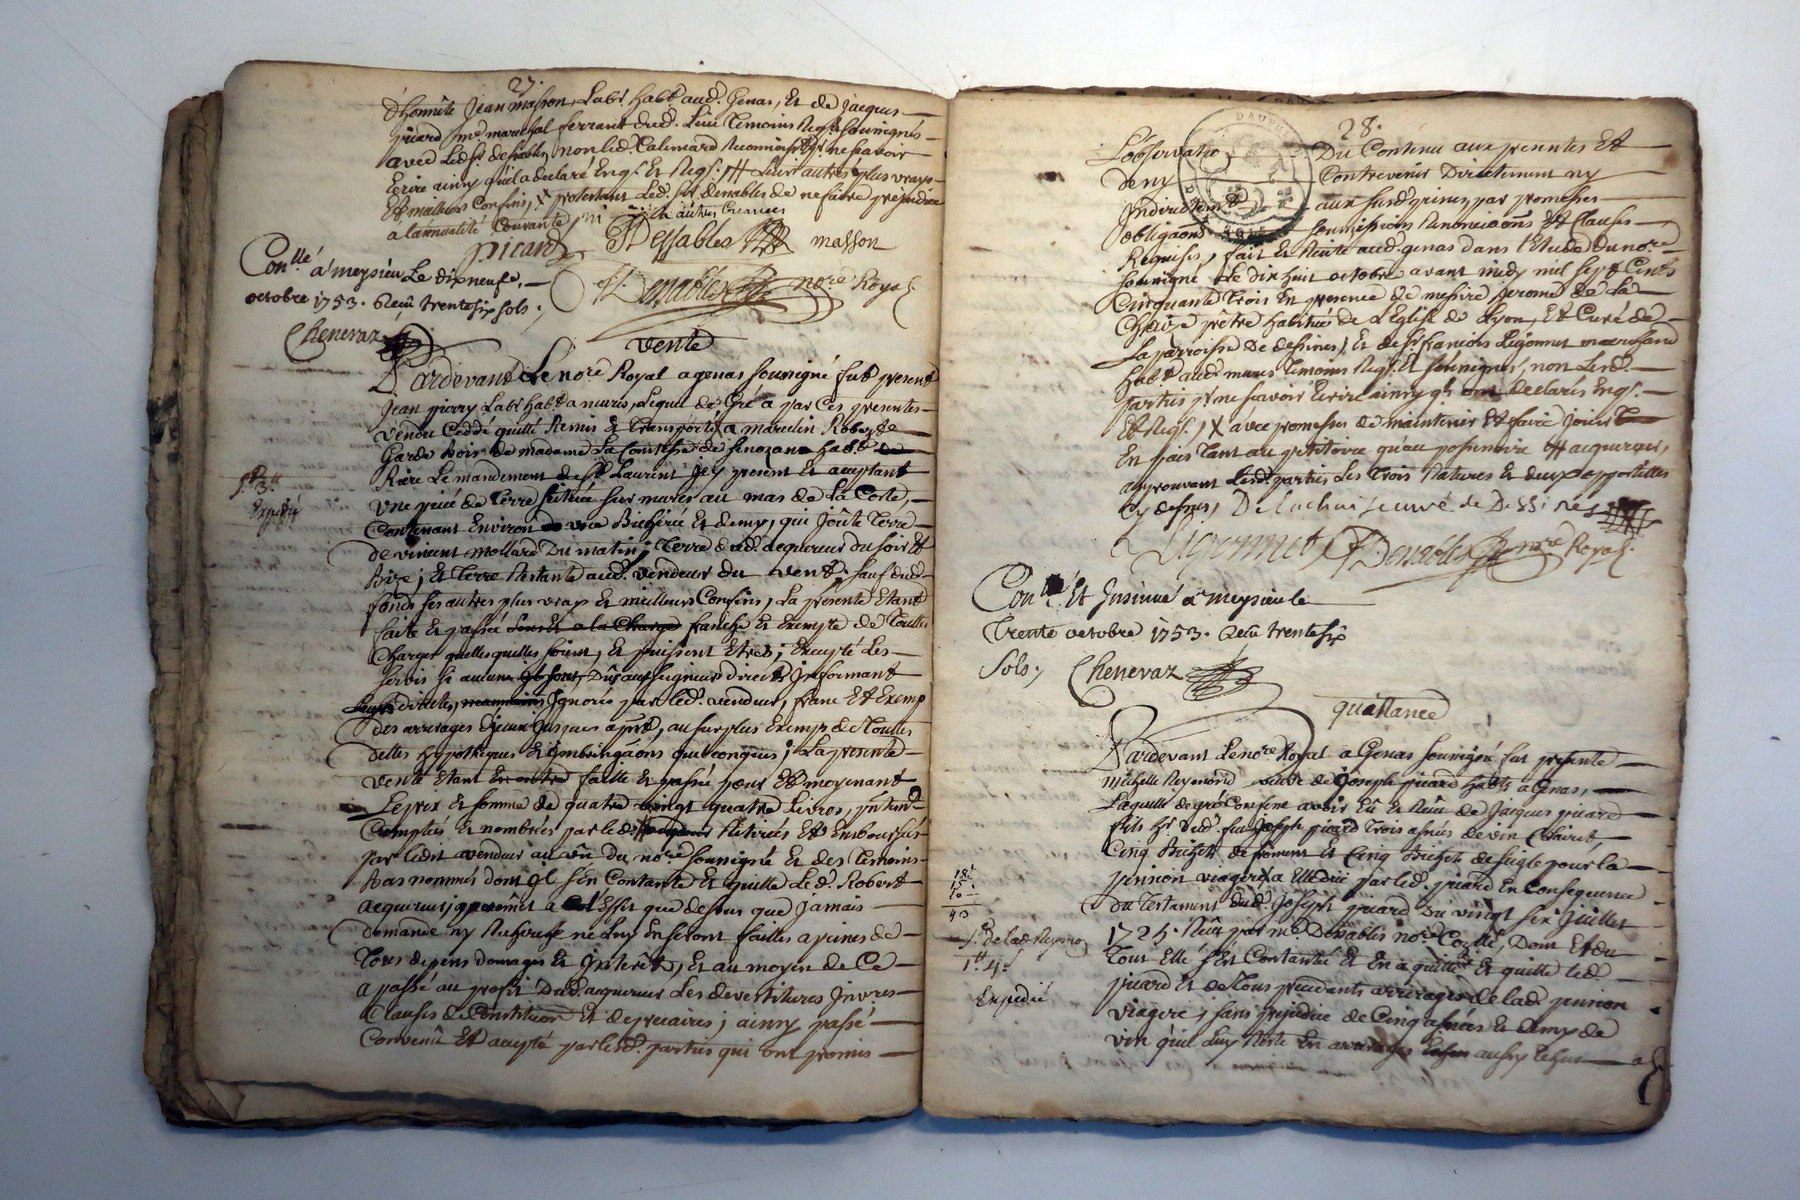 27.
d'honnête Jean masson, Labr habt aud. Genas, Et de jacques
picard me marechal ferrant dud. Lieu Temoins Reqs. soussignés
avec Ledsr. desvables, non led. Calemard
Ecrire ainsy qu'il a declaré Enqs. Et Reqs. Leurs autres plus vrays
Et meilleurs Confins, protestant Led. sr. de ne faire prejudice
a l'annualité Courante, ni autres Creances
picard masson
nore Royal
Conllé a meysieu Le dixneufe
octobre 1753. Reçu trentesix sols;
Chenevaz
vente
Pardevant Le nore Royal a genas soussigné fut present
Jean pierry Labr habt a mures, Lequel de Gré a par Ces presentes
vendu Ceddé quitté Remis Et Transporté a marcelin Robert
Garde bois de madame La Comtesse de senozan habt
Riere Le mandement de st Laurent jcy present Et acceptant
p. 3tt
Expedié
une piece de Terre scituée sur mures au mas de La Coste,
Contenant Environ une Bicherée Et demy, qui joûte Terre
de vincent mollard Du matin; Terre dud. acquereur du soir Et
Bize; Et Terre Restante aud. vendeur du vent, sauf dud.
fonds ses autres plus vrays Et meilleurs Confins, La presente Etant
faite Et passée franche Et Exempte de Toutes
Charges quelles quelles soient, Et puissent Etres; Excepté Les
servis si aucuns Dûs aux seigneurs directs
directes, Ignorés par led. vendeur, franc Et Exempt
des arrerages d'jceux jusques a pnt, au surplus Exempt de Toutes
dettes hypotheques Et quelconques; La presente
vente Etant faitte Et passée pour Et moyenant
Le prix Et somme de quatre vingt quatre Livres,
Comptés Et nombrées par led. Retirées Et Emboursés
par Ledit vendeur au vû du nore soussigné Et des Temoins
bas nommés dont jl s'en Contante Et quitte Led. Robert
acquereur, a Effet que dessus que Jamais
demande ny Recherche ne Luy En seront faittes a peines de
Tous depens domages Et jnterêts, Et au moyen de Ce
a passé au profit Dud. acquereur Les devestitures jnvres
Clauses de Constitution Et de precaires; ainsy passé
Convenû Et accepté par lesd. parties qui ont promis
28.
L'observation Du Contenu aux presentes Et
de ny Contrevenir Directement ny
jndirectement aux susd. peines, par promesses
obligaons soumissions Renonciaons Et Clauses
Requises, fait Et Recite aud. genas dans l'Etude du nore
soussigné Le Dix huit octobre avant midy mil sept Cents
Cinquante Trois En presence de messire jerome de La
Chaize prêtre habitué de L'Eglise de Lyon, Et Curé de
La parroisse De dessines, Et de sr francois Ligonnet marchand
habt aud. mures Temoins Reqs. Et soussignés, non Lesd.
parties pr ne scavoir Ecrire ainsy qls. ont declarés Enqs.
Et Reqs., X avec promesses de maintenir Et faire Jouir
En paix Tant au petitoire qu'au possessoire acquereur,
approuvant Lesd. parties Les Trois Ratures Et deux appostilles
Cy dessus, De Lachaise curé de Dessines
Ligonnet nore Royal
Conllé Et Jnsinué a meysieu le
Trente octobre 1753. Reçu trentesix
Sols; Chenevaz
quittance
Pardevant Le nore Royal a Genas soussigné fut presente
michelle Reymond veuve de Joseph picard habte a Genas,
Laquelle de gré Confesse avoir Eû Et Reçu de Jacques picard
fils hr dud. feu Joseph picard Trois asnées de vin Clairet,
Cinq Bichets de froment Et Cinq Bichets de seigle pour La
pension viagere a Elle due par led. picard En Consequence
Du Testament dud. Joseph picard Du vingt six Juillet
18
15
10
43
1725. Reçu par me Desvables nore Dont Et du
Tout Elle s'En Contante Et En a quitté Et quitte led.
picard Et de Tous precedants arrerages de lad. pension
viagere, sans prejudice de Cinq asnées Et demy de
vin qu'il Luy Reste En arrerages
p. de lad. Reymond
1tt 4s
Expedié